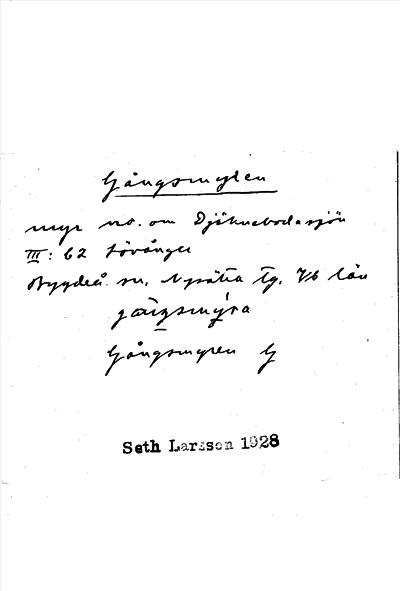 Gångsmyren
myr no. om Djäknebodasjön
III: 62 Lövånger
Bygdeå sn, Nysätra tg, Vb län
Gångsmyren G
Seth Larsson 1928